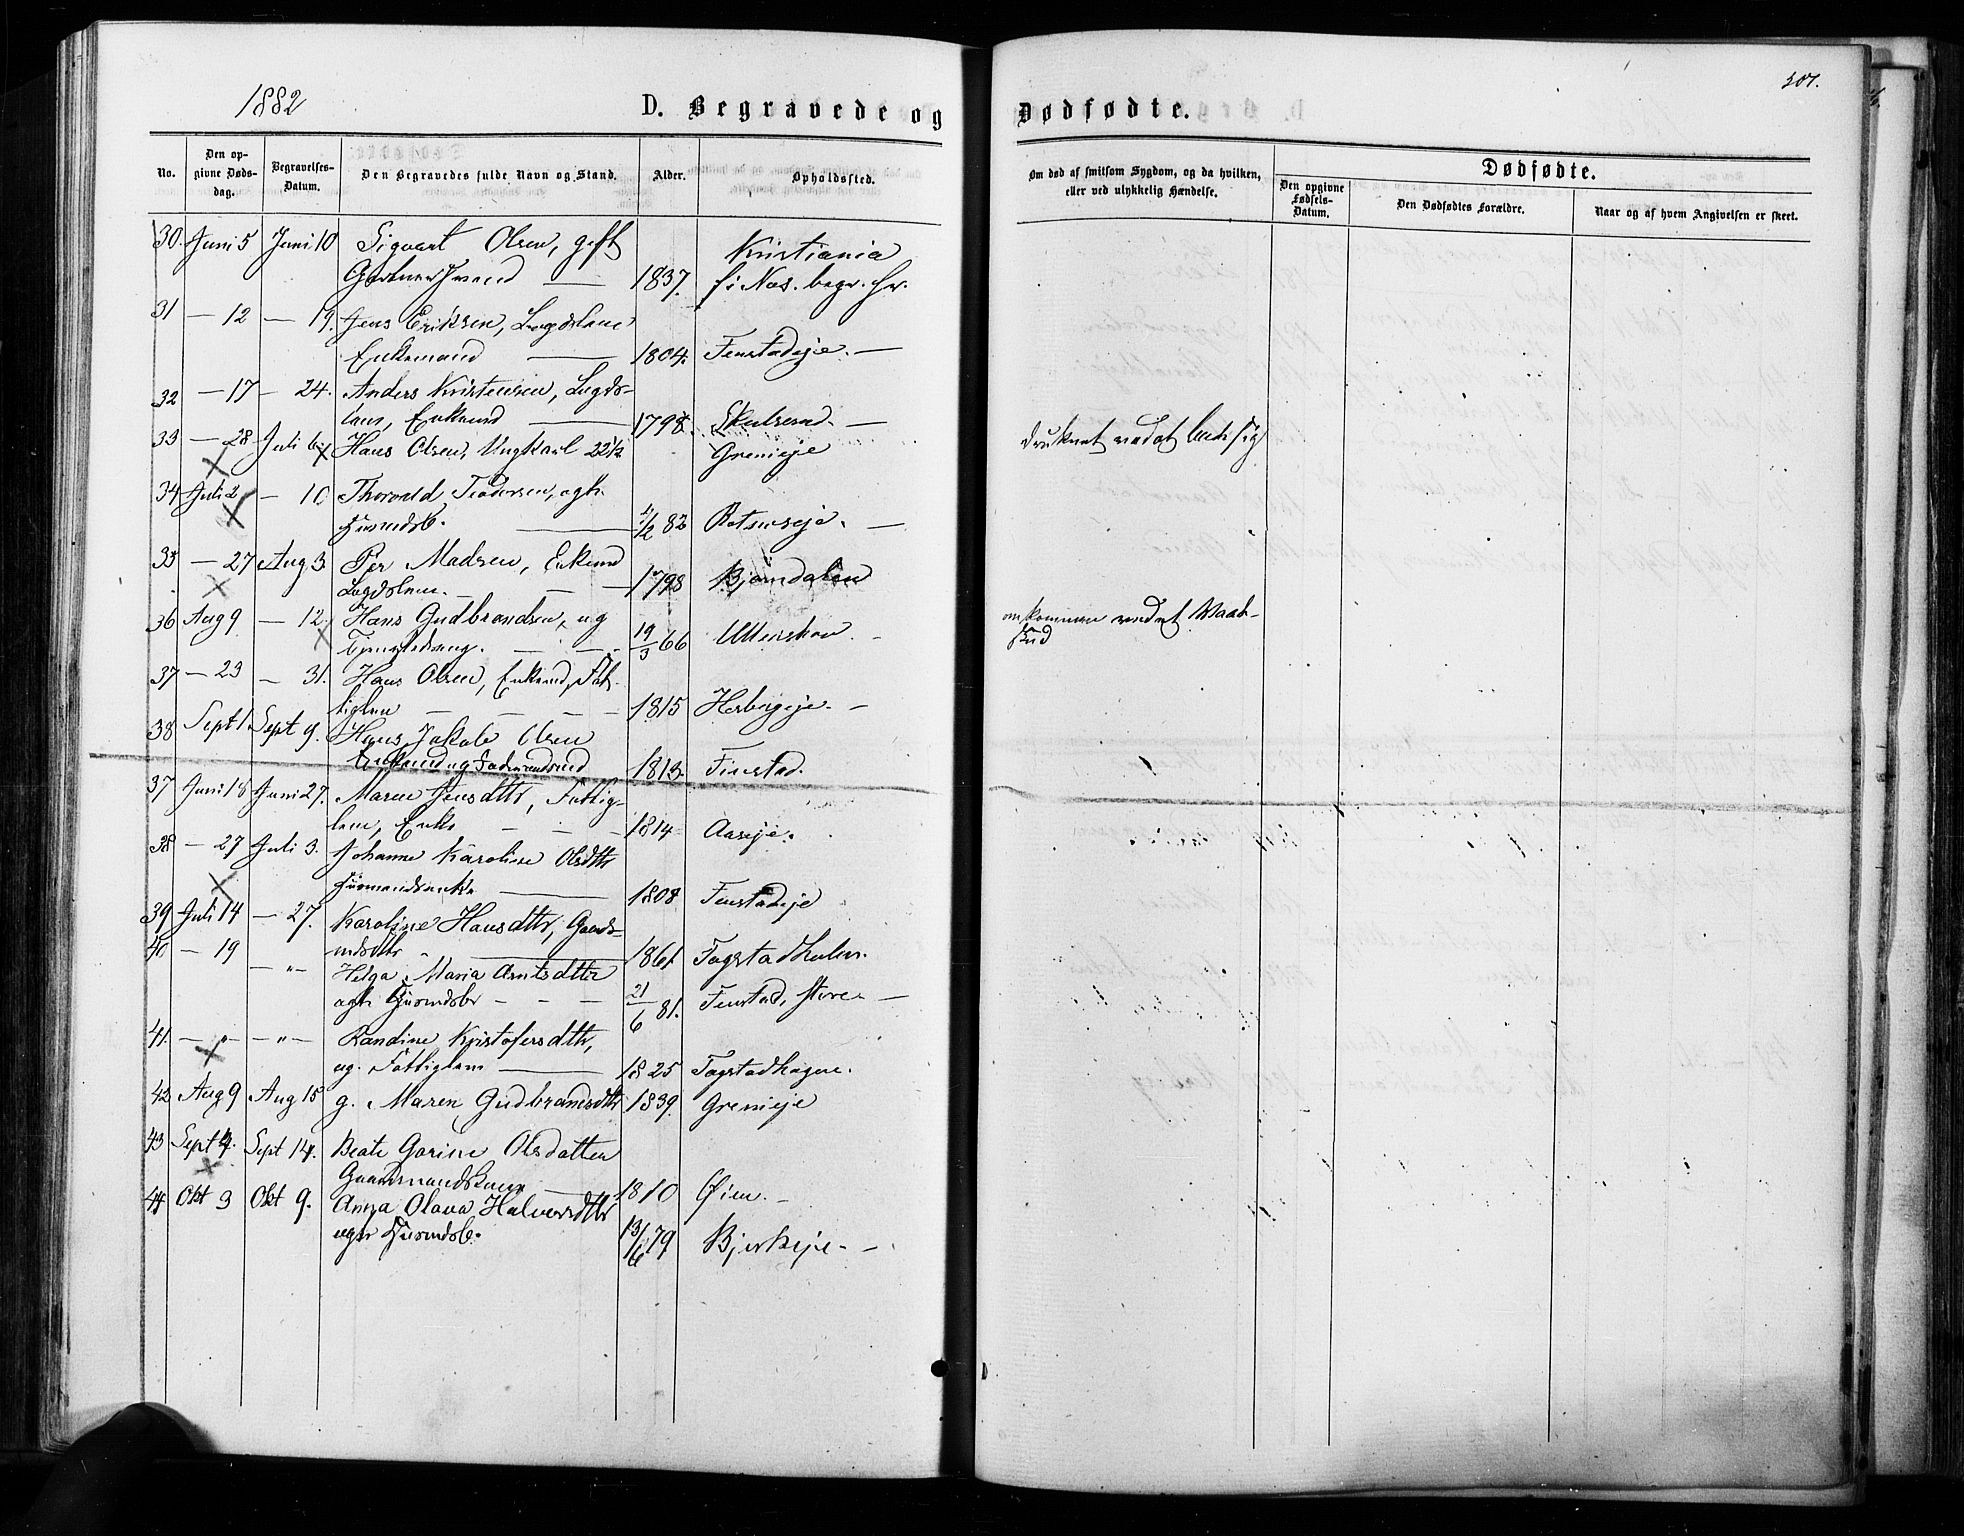 1882
D. Begravede og Dødfødte.
207.
No.
Den opgivne Dødsdag.
Begravelses-Datum.
Den Begravedes fulde Navn og Stand.
Alder.
Opholdssted.
Om død af smitsom Sygdom, og da hvilken, eller ved ulykkelig Hændelse.
Dødfødte.
Den opgivne Fødsels-Datum.
Den Dødfødtes Forældre.
Naar og af hvem Angivelsen er skeet.
30. Juni 5 Juni 10 Sigvart Olsen, gift Kristiania
1837. f i Nes. begr. hr.
31 — 12 — 19. Jens Eriksen, Lægdslem
Enkemand — 1804. Fenstadeje. —
32 — 17 — 24. Anders Kristensen, Lægds-
lem, Enkemd — 1798. Skulserud. —
33 — 28 Juli 6 Hans Olsen, Ungkarl 22½ Grenieje druknet ved at bade sig
34 Juli 2 — 10 Thorvald Teodorsen, ægte
Husmdsb. — 4/2 82 —
35 — 27 Aug 3 Per Madsen, Enkemd
Lægdslem. — 1798 Bjørndalen
36 Aug 9 — 12. Hans Gudbrandsen, ug
Tjenestedreng. — 19/3 66 Ullershov. omkommen ved et Vaad-
skud
37 — 23 — 31. Hans Olsen, Enkemd, Fat-
tiglem — 1815 Herbergeje. —
38 Sept 1 Sept 9. Hans Jakob Olsen
Enkemd og Føderaadsmd 1813. Finstad.
37 Juni 18 Juni 27. Maren Jensdtr, Fattig-
lem, Enke — 1814 Aaseje.
38 — 27 Juli 3. Johanne Karoline Olsdtr
Husmandsenke — 1808 Fenstadeje
39 Juli 14 — 27. Karoline Hansdtr, Gaard-
mdsdtr — 1861 Fagstadholen.
40 — 19 — " — Helga Maria Arntsdtter
ægte Husmdsbr — 21/6 81. Fenstad, store —
41. — " — — " — Randine Kristofersdtr,
ug. Fattiglem — 1825 Fagstadhagen.
42 Aug 9 Aug 15 g. Maren Gudbrandsdtr 1839. Grenieje
43 Sept 4. Sept 14. Beate Gorine Olsdatter
Gaardmandskone 1810 Øien. —
44 Okt 3 Okt 9. Anna Olava Halvorsdtr
ægte Husmdsb. 13/6 79 Bjerkeje. —